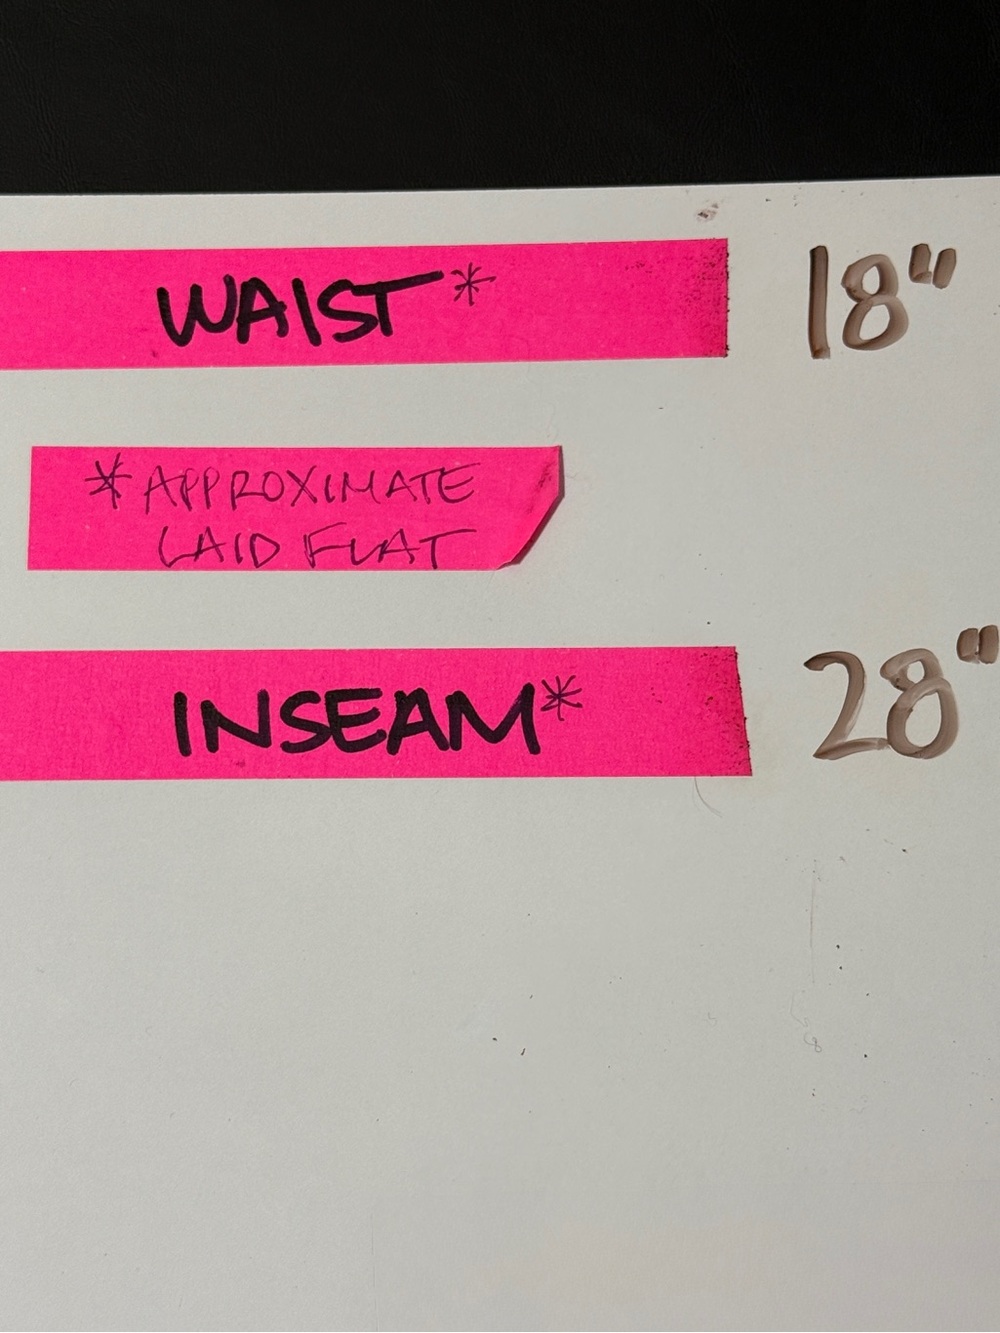 WAIST* 18"
*APPROXIMATE
LAID FLAT
INSEAM* 28"